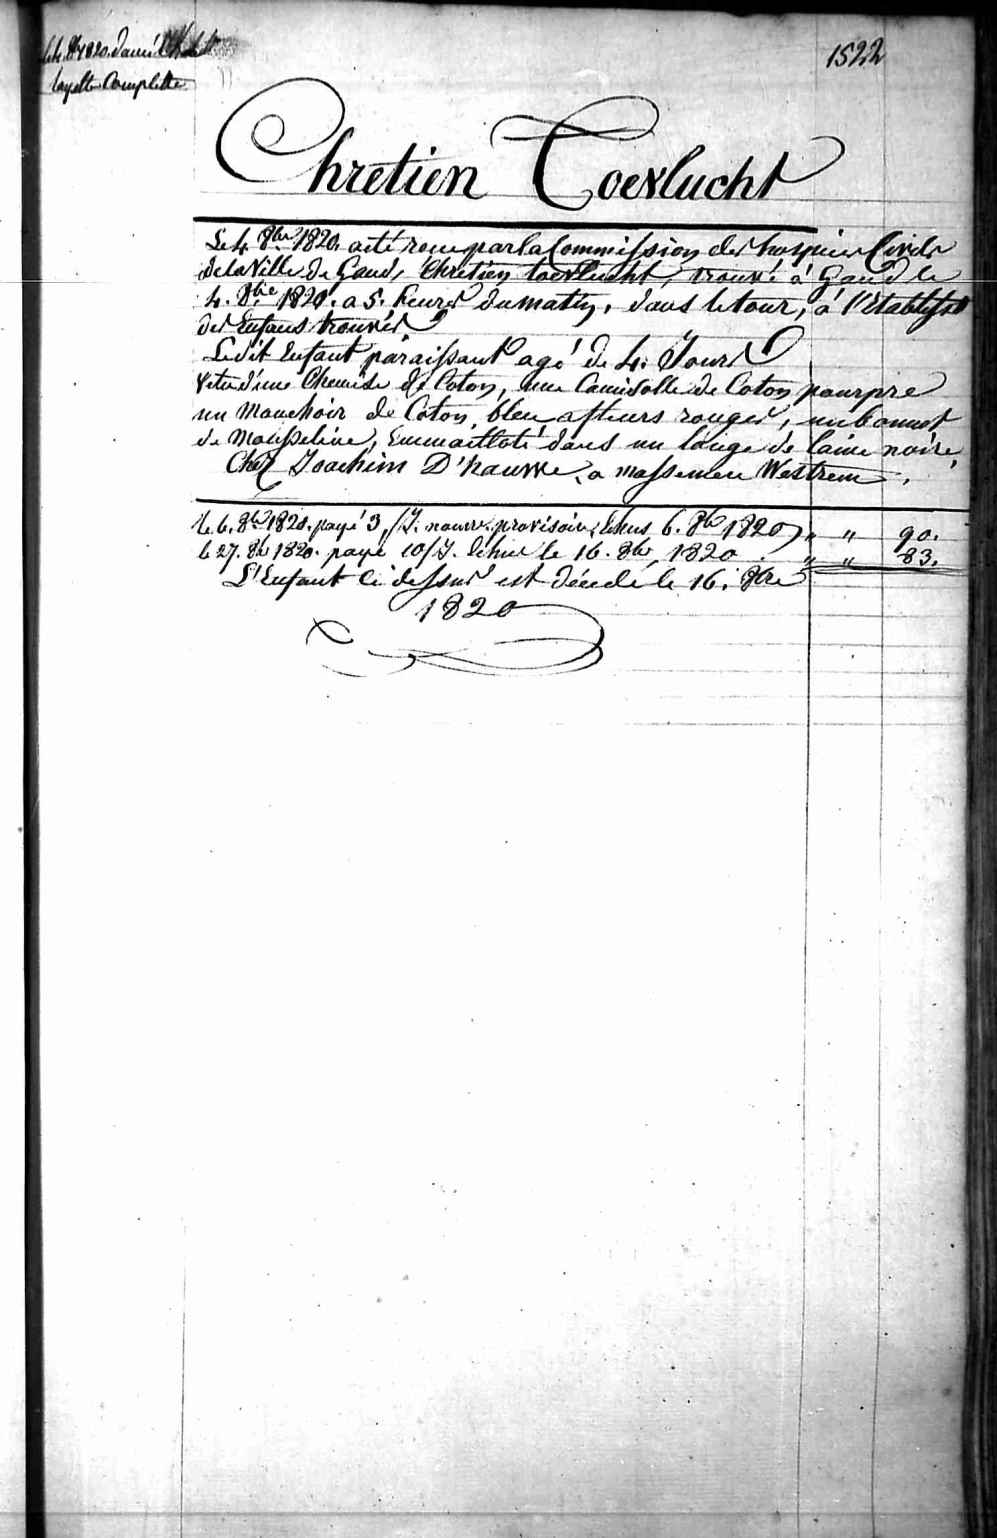 le 4. 8bre 1820. donné
layette Complette
1522
Chretien Toevlucht
Le 4. 8bre 1820. a été reçu par la Commission des hospices Civils
de la Ville de Gand, Chretien toevlucht, trouvé à Gand le
4. 8bre 1820. a 5. heures du matin, dans le tour, à l'Etablisst
des Enfans trouvés
Ledit Enfant paraissant agé de 4. Jours
vetu d'une Chemise de Coton, une Camisolle de Coton pourpre
un Mouchoir de Coton, bleu, a fleurs rouges, un bonnet
de Mousseline, Emmailloté dans un lange de laine noire,
Chez Joachim D'hauwe, a Massemen Westrem.
le 6. 8bre 1820. payé 3/J. nourre. provisoire, Echus 6. 8bre 1820 " " 90.
le 27. 8bre 1820. payé 10/J. Echus le 16. 8bre 1820 " " 83.
L'Enfant Ci dessus est décédé le 16. 8bre
1820